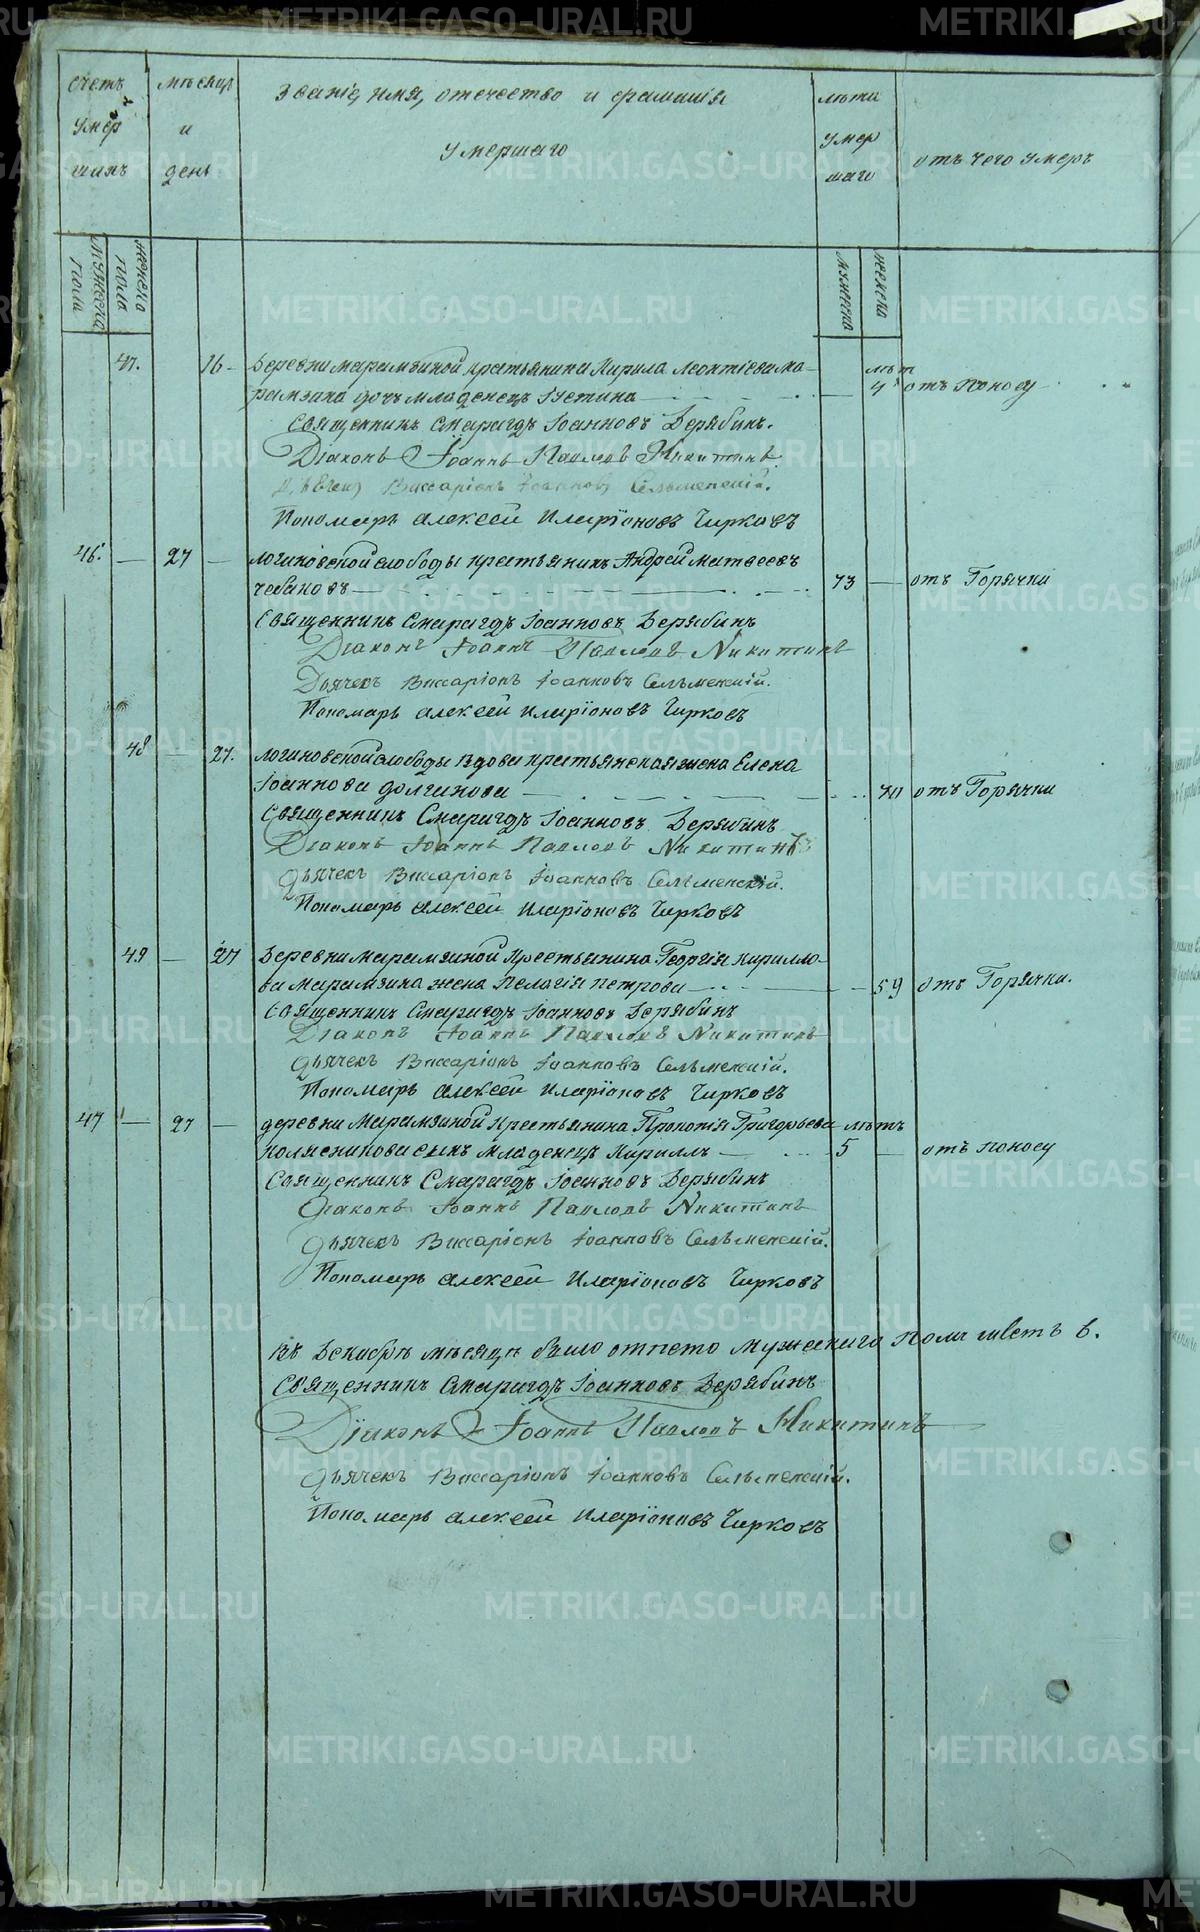 счетъ умер шихъ
мѣсяцъ и день
Званіе, имя, отечество и фамилія
умершаго
лѣта умер шаго
отъ чего умеръ
мужеска пола
женска пола
мужеска
женска
47. 16 - Деревни Марамзиной крестьянина Кирила Леонтіева Ма-
рамзина дочь младенецъ Устина лѣт 4 отъ поносу
Священникъ Смарагдъ Іоанновъ Дерябинъ.
Діаконъ Іоаннъ Павловъ Никитинъ
Дьячекъ Виссаріонъ Іоанновъ Сельменскій.
Пономарь Алексей Иларіоновъ Чирковъ
46. — 27 — Логиновской слободы крестьянинъ Андрей Матвеевъ
Чебановъ — 73 — отъ Горячки
Священникъ Смарагдъ Іоанновъ Дерябинъ
Діаконъ Іоаннъ Павловъ Никитинъ
Дьячекъ Виссаріонъ Іоанновъ Сельменскій.
Пономарь Алексей Иларіоновъ Чирковъ
48 — 27. Логиновской слободы вдова крестьянская жена Елена
Іоаннова Долганова — 70 отъ Горячки
Священникъ Смарагдъ Іоанновъ Дерябинъ
Діаконъ Іоаннъ Павловъ Никитинъ
Дьячекъ Виссаріонъ Іоанновъ Сельменскій.
Пономарь Алексей Иларіоновъ Чирковъ
49 — 27 Деревни Марамзиной Крестьянина Георгія Кирилло-
ва Марамзина жена Пелагія Петрова — 59 отъ Горячки.
Священникъ Смарагдъ Іоанновъ Дерябинъ
Діаконъ Іоаннъ Павловъ Никитинъ
Дьячекъ Виссаріонъ Іоанновъ Сельменскій.
Пономарь Алексей Иларіоновъ Чирковъ
47 — 27 — деревни Марамзиной Крестьянина Прокопія Григорьева лѣтъ
Колясникова сынъ младенецъ Кириллъ — 5 — отъ поносу
Священникъ Смарагдъ Іоанновъ Дерябинъ
Діаконъ Іоаннъ Павловъ Никитинъ
Дьячекъ Виссаріонъ Іоанновъ Сельменскій.
Пономарь Алексей Иларіоновъ Чирковъ
въ Декабрѣ мѣсяцѣ было отпето мужескаго пола шесть 6.
Священникъ Смарагдъ Іоанновъ Дерябинъ
Діаконъ Іоаннъ Павловъ Никитинъ
Дьячекъ Виссаріонъ Іоанновъ Сельменскій.
Пономарь Алексей Иларіоновъ Чирковъ
METRIKI.GASO-URAL.RU